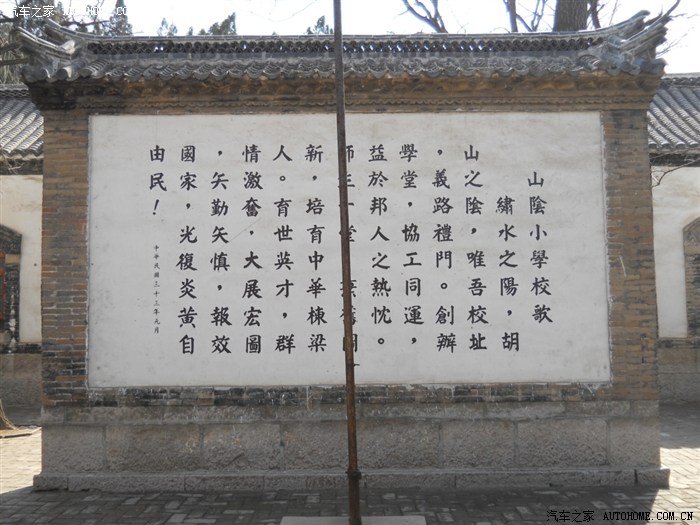 汽车之家 AUTOHOME.COM.CN
山陰小學校歌
繡水之陽，胡
山之陰，唯吾校址
，義路禮門。創辦
學堂，協工同運，
益於邦人之熱忱。
師生一堂
新，培育中華棟梁
人。育世英才，群
情激奮，大展宏圖
，矢勤矢慎，報效
國家，光復炎黃自
由民！
中華民國三十三年元月
汽车之家 AUTOHOME.COM.CN